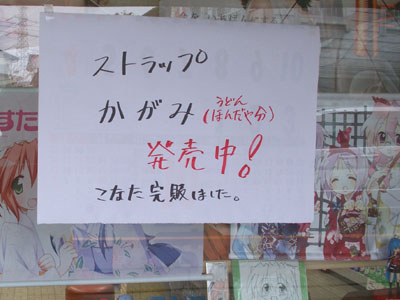 ストラップ
かがみ(うどんほんだや分)
発売中!
こなた完販しました。
すた